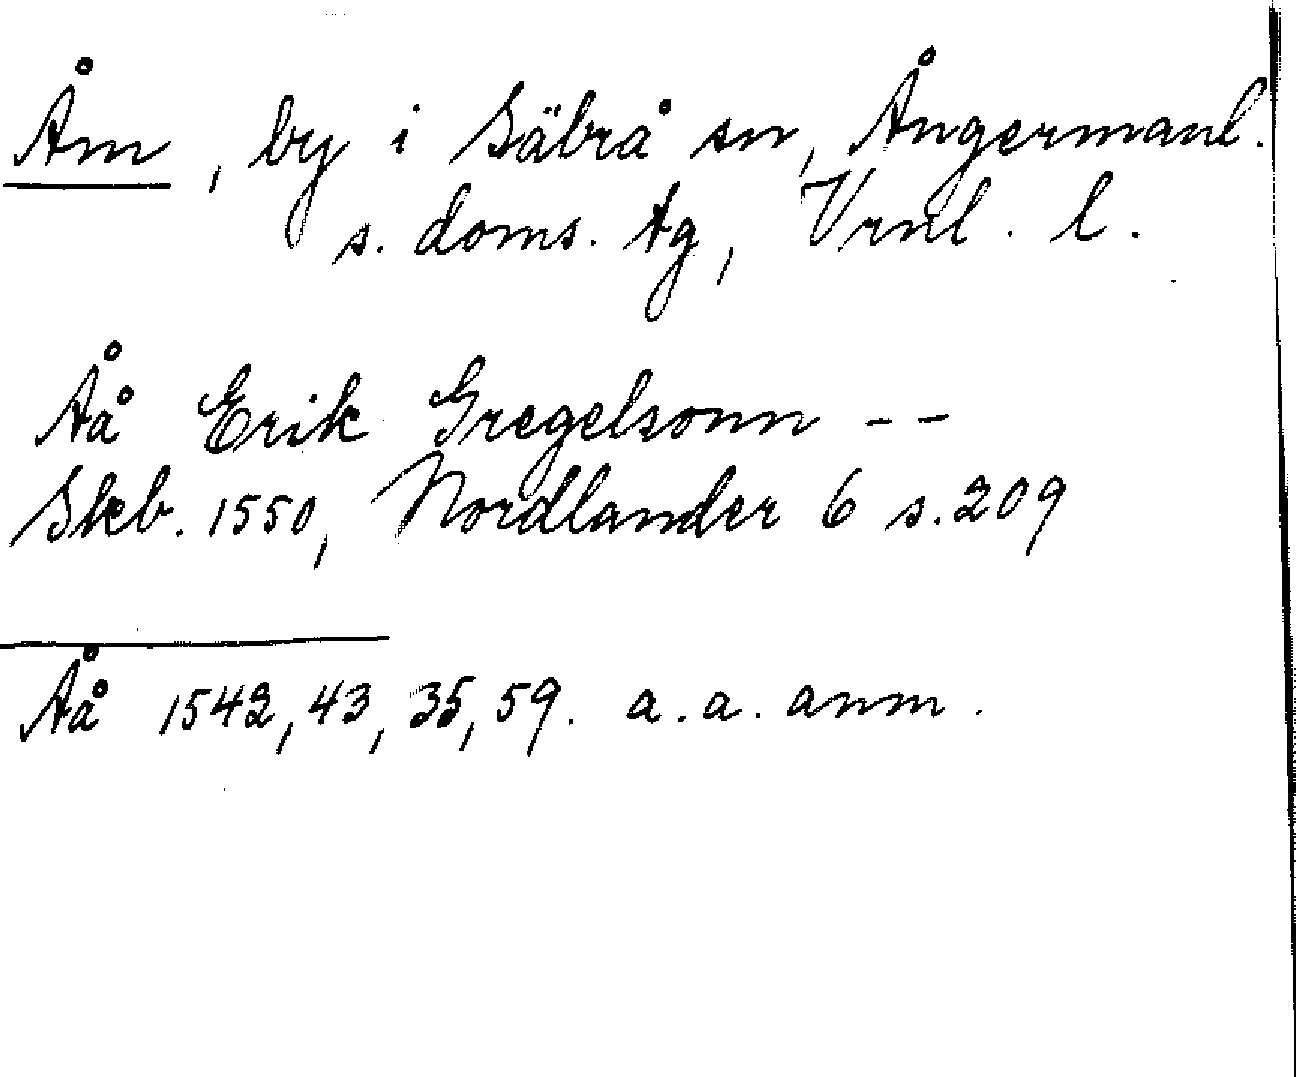 Åm, by i Säbrå sn, Ångermanl.
s. doms. tg, Vrnl. l.
Åå Erik Gregelsonn - -
Skb. 1550, Nordlander 6 s. 209
Åå 1542, 43, 35, 59. a. a. anm.